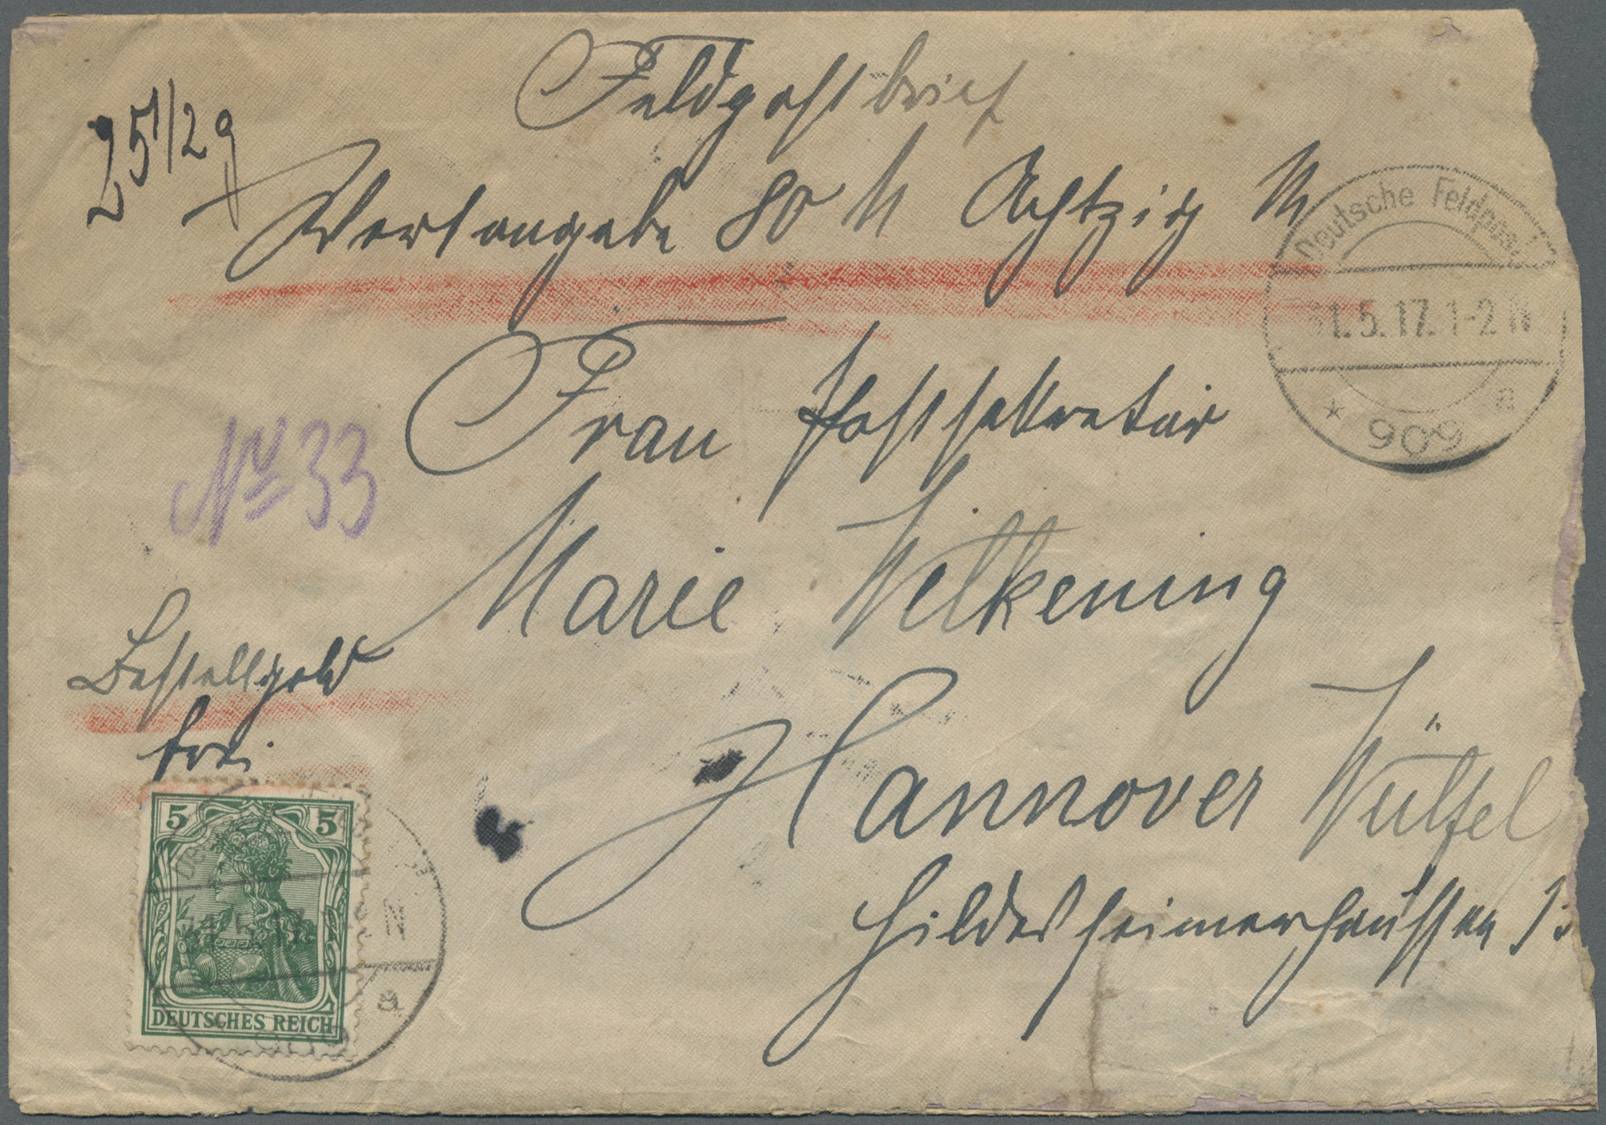 Feldpostbrief
25 1/2 g
Wertangabe 80 M Achtzig M
Deutsche Feldpost
31.5.17. 1-2 N
* 909 a
Frau Postsekretär
No 33
Marie Wilkening
Bestellgeld
frei
Hannover Wülfel
Hildesheimerchaussee
5 5
31.5.17. N
a
DEUTSCHES REICH